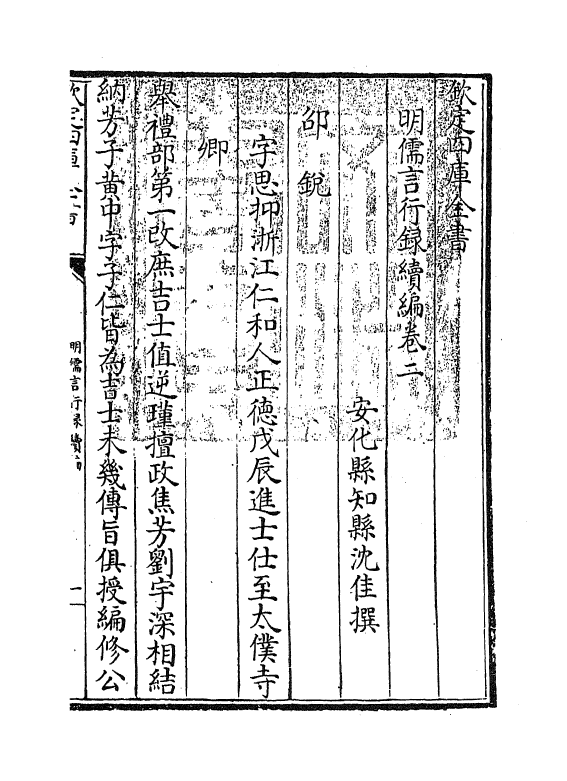 欽定四庫全書
明儒言行録續編卷二
安化縣知縣沈佳撰
邵銳
字思抑浙江仁和人正徳戊辰進士仕至太僕寺
卿
舉禮部第一改庶吉士值逆瑾擅政焦芳劉宇深相結
納芳子黄中宇子仁皆為吉士未幾傳旨俱授編修公
欽定四庫全書
明儒言行録續編
一